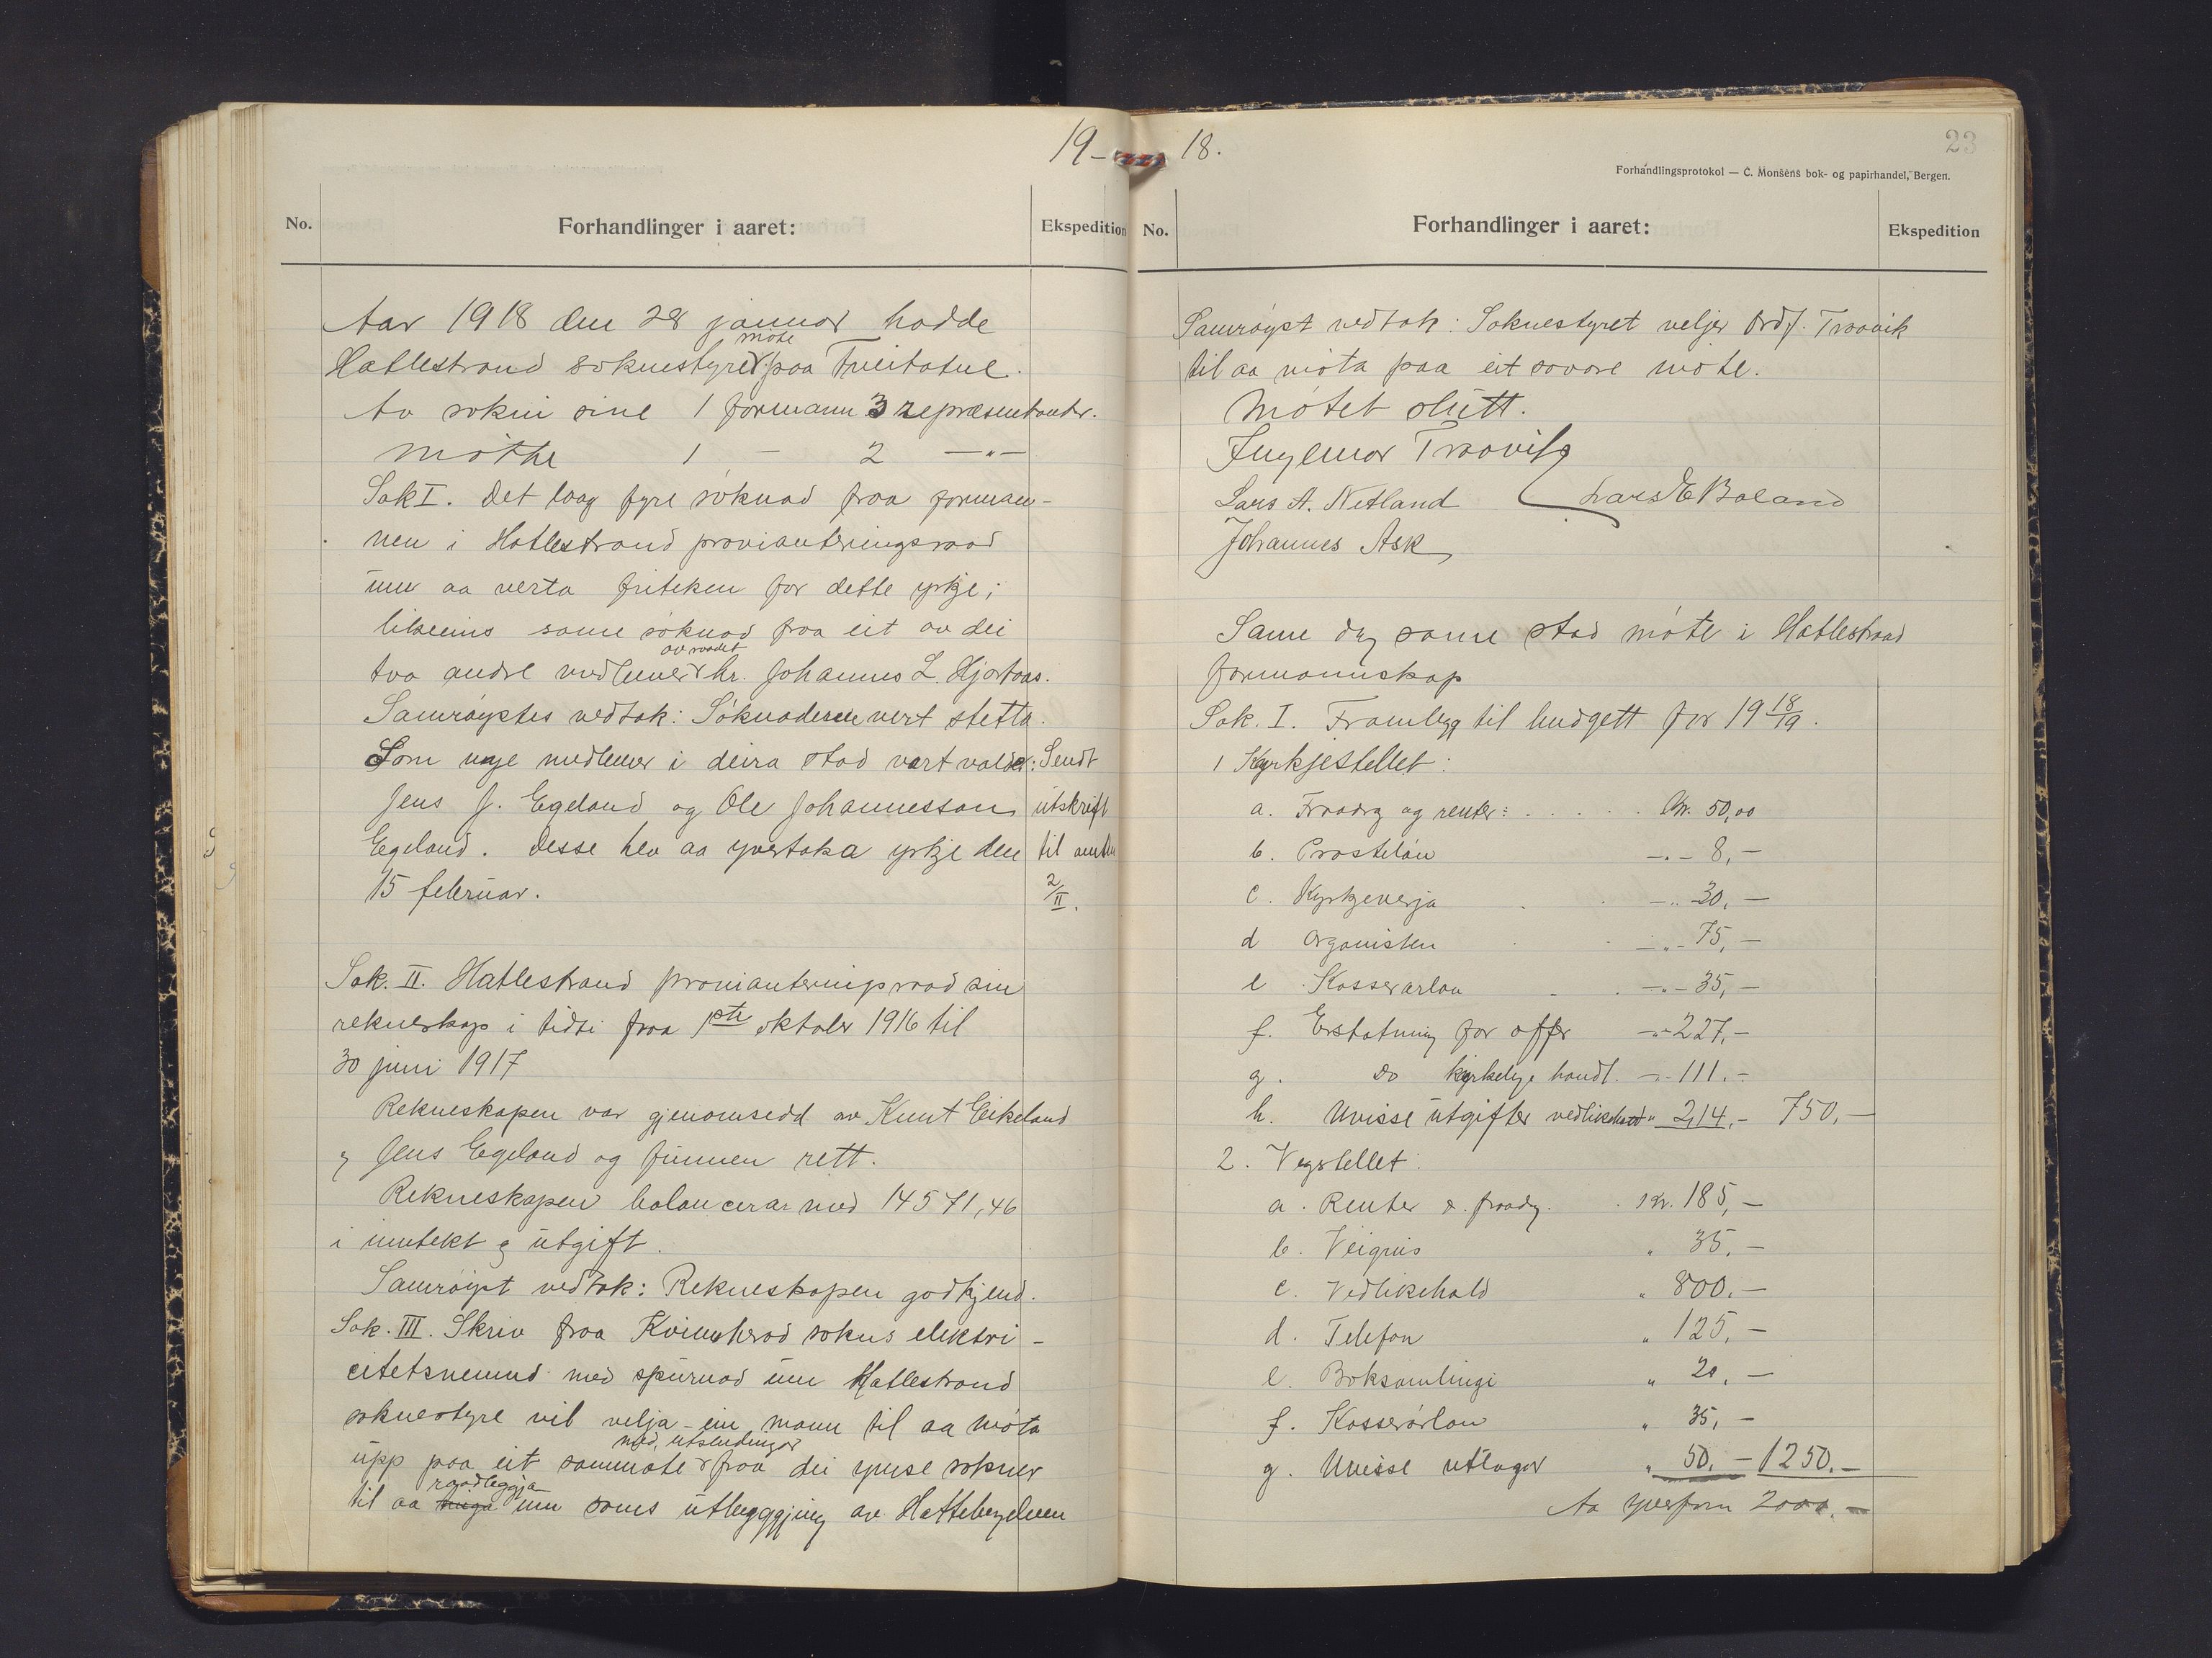 19-
No.
Forhandlinger i aaret:
Ekspedition
Aar 1918 den 28 januar hadde
Hatlestrand soknestyre møte paa Tveitatul.
Av sokni sine 1 formann 3 repræsentantar.
møthe 1 — 2 —"—
Sak I. Det laag fyre søknad fraa forman-
nen i Hatlestrand provianteringsraad
um aa verta friteken for dette yrkje;
likeeins same søknad fraa eit av dei
tvo andre medlemer av raadet hr. Johannes L. Hjartaas.
Samrøystes vedtak: Søknaderne vert stetta.
Som nye medlemer i deira stad vart valde: Sendt
Jens J. Egeland og Ole Johannesson utskrift
Egeland. Desse hev aa yvertaka yrkje den til amtet
15 februar. 2/II.
Sak. II. Hatlestrand provianteringsraad sin
rekneskap i tidi fraa 1ste oktober 1916 til
30 juni 1917
Rekneskapen var gjenomsedd av Knut Eikeland
og Jens Egeland og funnen rett.
Rekneskapen balancerar med 14571,46
i inntekt og utgift.
Samrøyst vedtak: Rekneskapen godkjend.
Sak. III. Skriv fraa Kvinnherad sokns elektri-
citetsnemnd med spurnad um Hatlestrand
soknestyre vil velja ein mann til aa møta
upp paa eit sammøte med utsendingar fraa dei ymse sokner
til aa raadleggja um sams utbyggjing av Hattebergelven
18.
23
Forhandlingsprotokol — C. Monsens bok- og papirhandel, Bergen.
No.
Forhandlinger i aaret:
Ekspedition
Samrøyst vedtak: Soknestyret veljer Ordf. Traavik
til aa møta paa eit sovore møte.
Møtet slutt.
Ingemar Traavik
Lars A. Netland Lars E Baland
Johannes Ask
Same dag same stad møte i Hatlestrand
formannskap
Sak. I. Framlegg til budgett for 19 18/19.
1 Kyrkjestellet:
a. Fraadrg og renter: . . . . . Kr. 50,00
b. Prosteløn —"— 8,—
c. Kyrkjeverja . . —"— 30,—
d Organisten . . —"— 75,—
e Kasserarløn . . —"— 35,—
f. Erstatning for offer —"— 227,—
g. do kyrkelige handl. —"— 111.—
h. Uvisse utgifter vedlikehald " 214,— 750,—
2. Vegstellet:
a. Renter o. fraadrg. . Kr. 185,—
b. Veigrus " 35,—
c. Vedlikehald " 800,—
d. Telefon " 125,—
e. Boksamlingi " 20,—
f. Kasserarløn " 35,—
g. Uvisse utlagor " 50.— 1250.—
Aa yverføra 2000.—